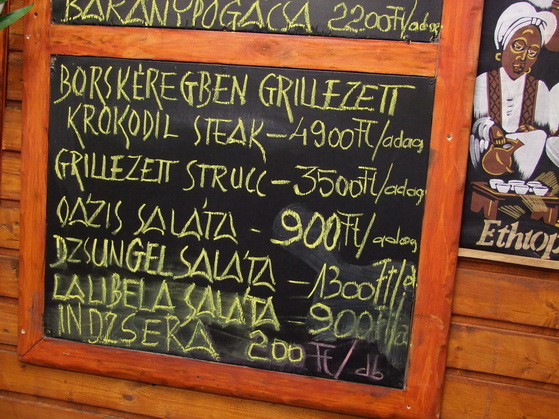 BÁRÁNYPOGÁCSA 2200Ft/adag
BORSKÉREGBEN GRILLEZETT
KROKODIL STEAK-4900Ft/adag
GRILLEZETT STRUCC-3500Ft/adag
OÁZIS SALÁTA - 900Ft/adag
DZSUNGEL SALÁTA -1300Ft/
LALIBELA SALÁTA -900Ft/a
INDZSERA 200 Ft/db
Ethiop